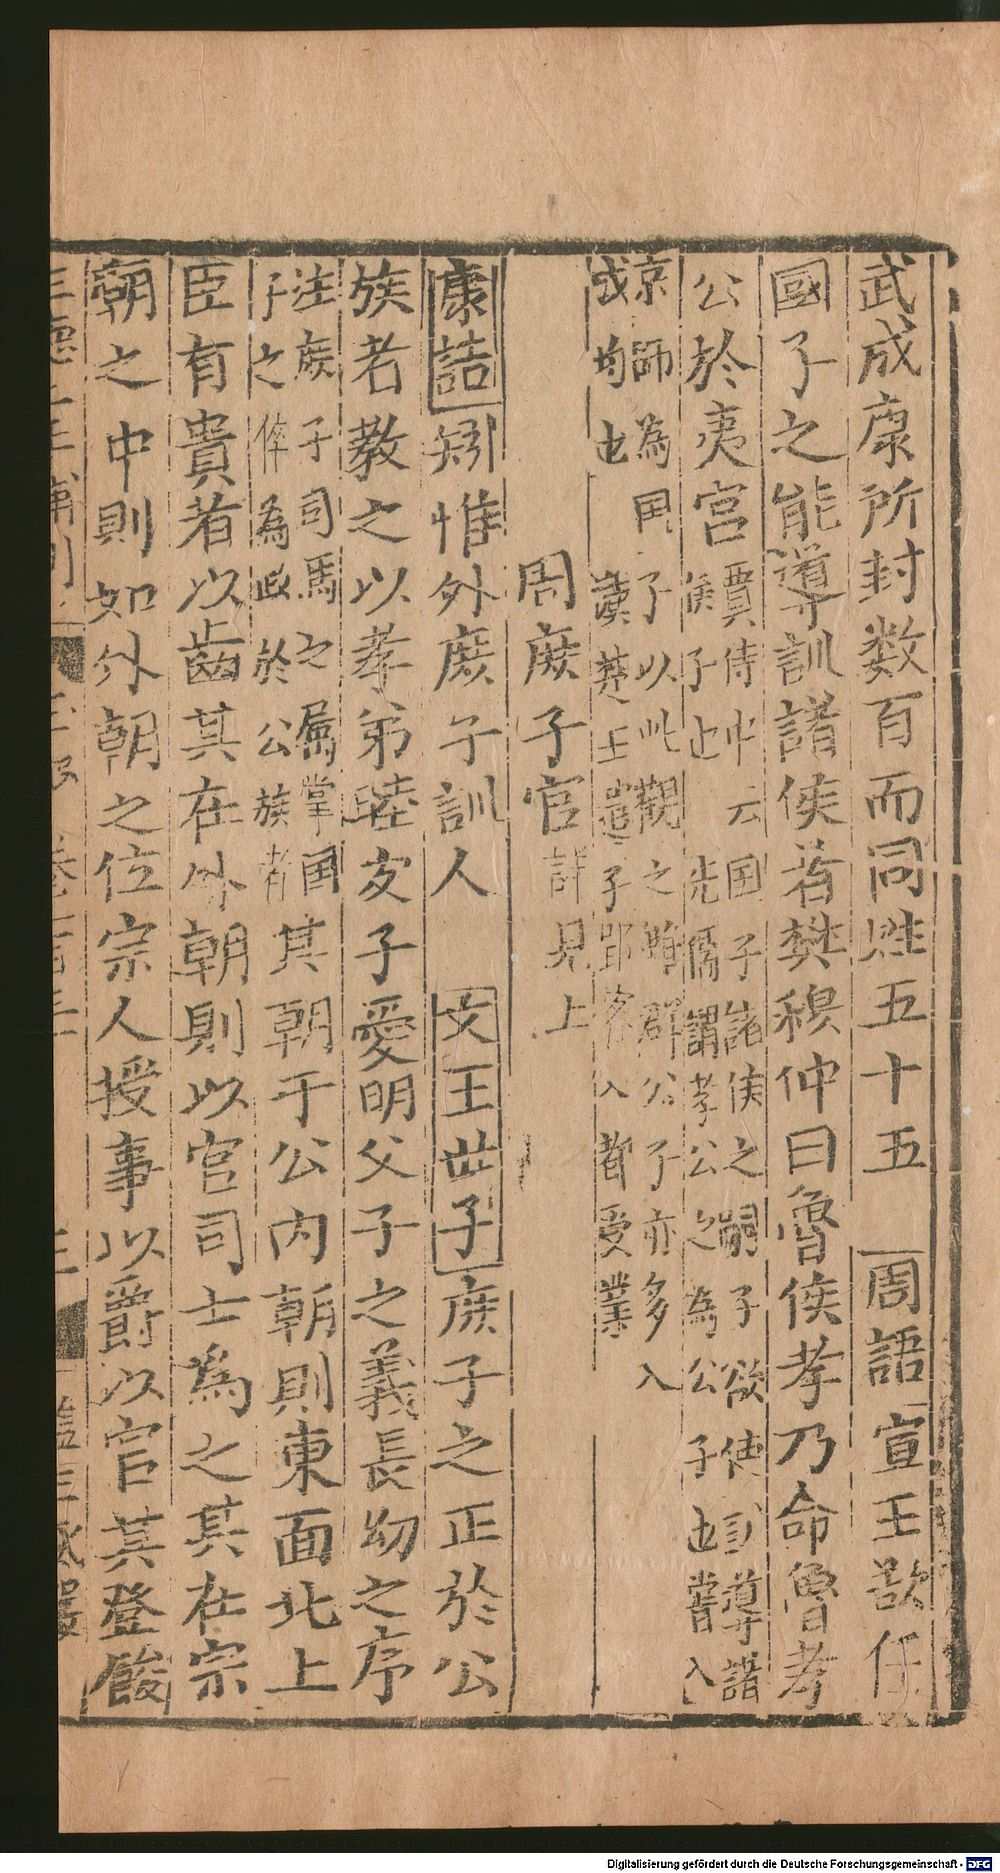 武成康所封数百而同姓五十五 周語宣王欲任
國子之能導訓諸侯者樊穆仲曰魯侯孝乃命魯孝
公於夷宫
賈侍中云国子諸侯之嗣子欲使訓導諸
侯子也 先儒謂孝公之為公子也嘗入
京師為国子以此觀之唯群公子亦多入
成均也 漢莽王遣子
入都受業
周庻子官詳見上
康誥矧惟外庻子訓人 文王丗子庻子之正於公
族者教之以孝弟睦友子愛明父子之義長幼之序
注庻子司馬之属掌国
子之倅為政於公族者
其朝于公内朝則東面北上
臣有貴者以齒其在外朝則以官司士為之其在宗
廟之中則如外朝之位宗人授事以爵以官其登餕
Digitalisierung gefördert durch die Deutsche Forschungsgemeinschaft - DFG